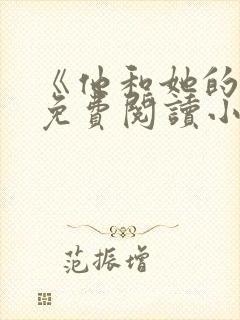 《他和她的
免費閱讀小
范振增